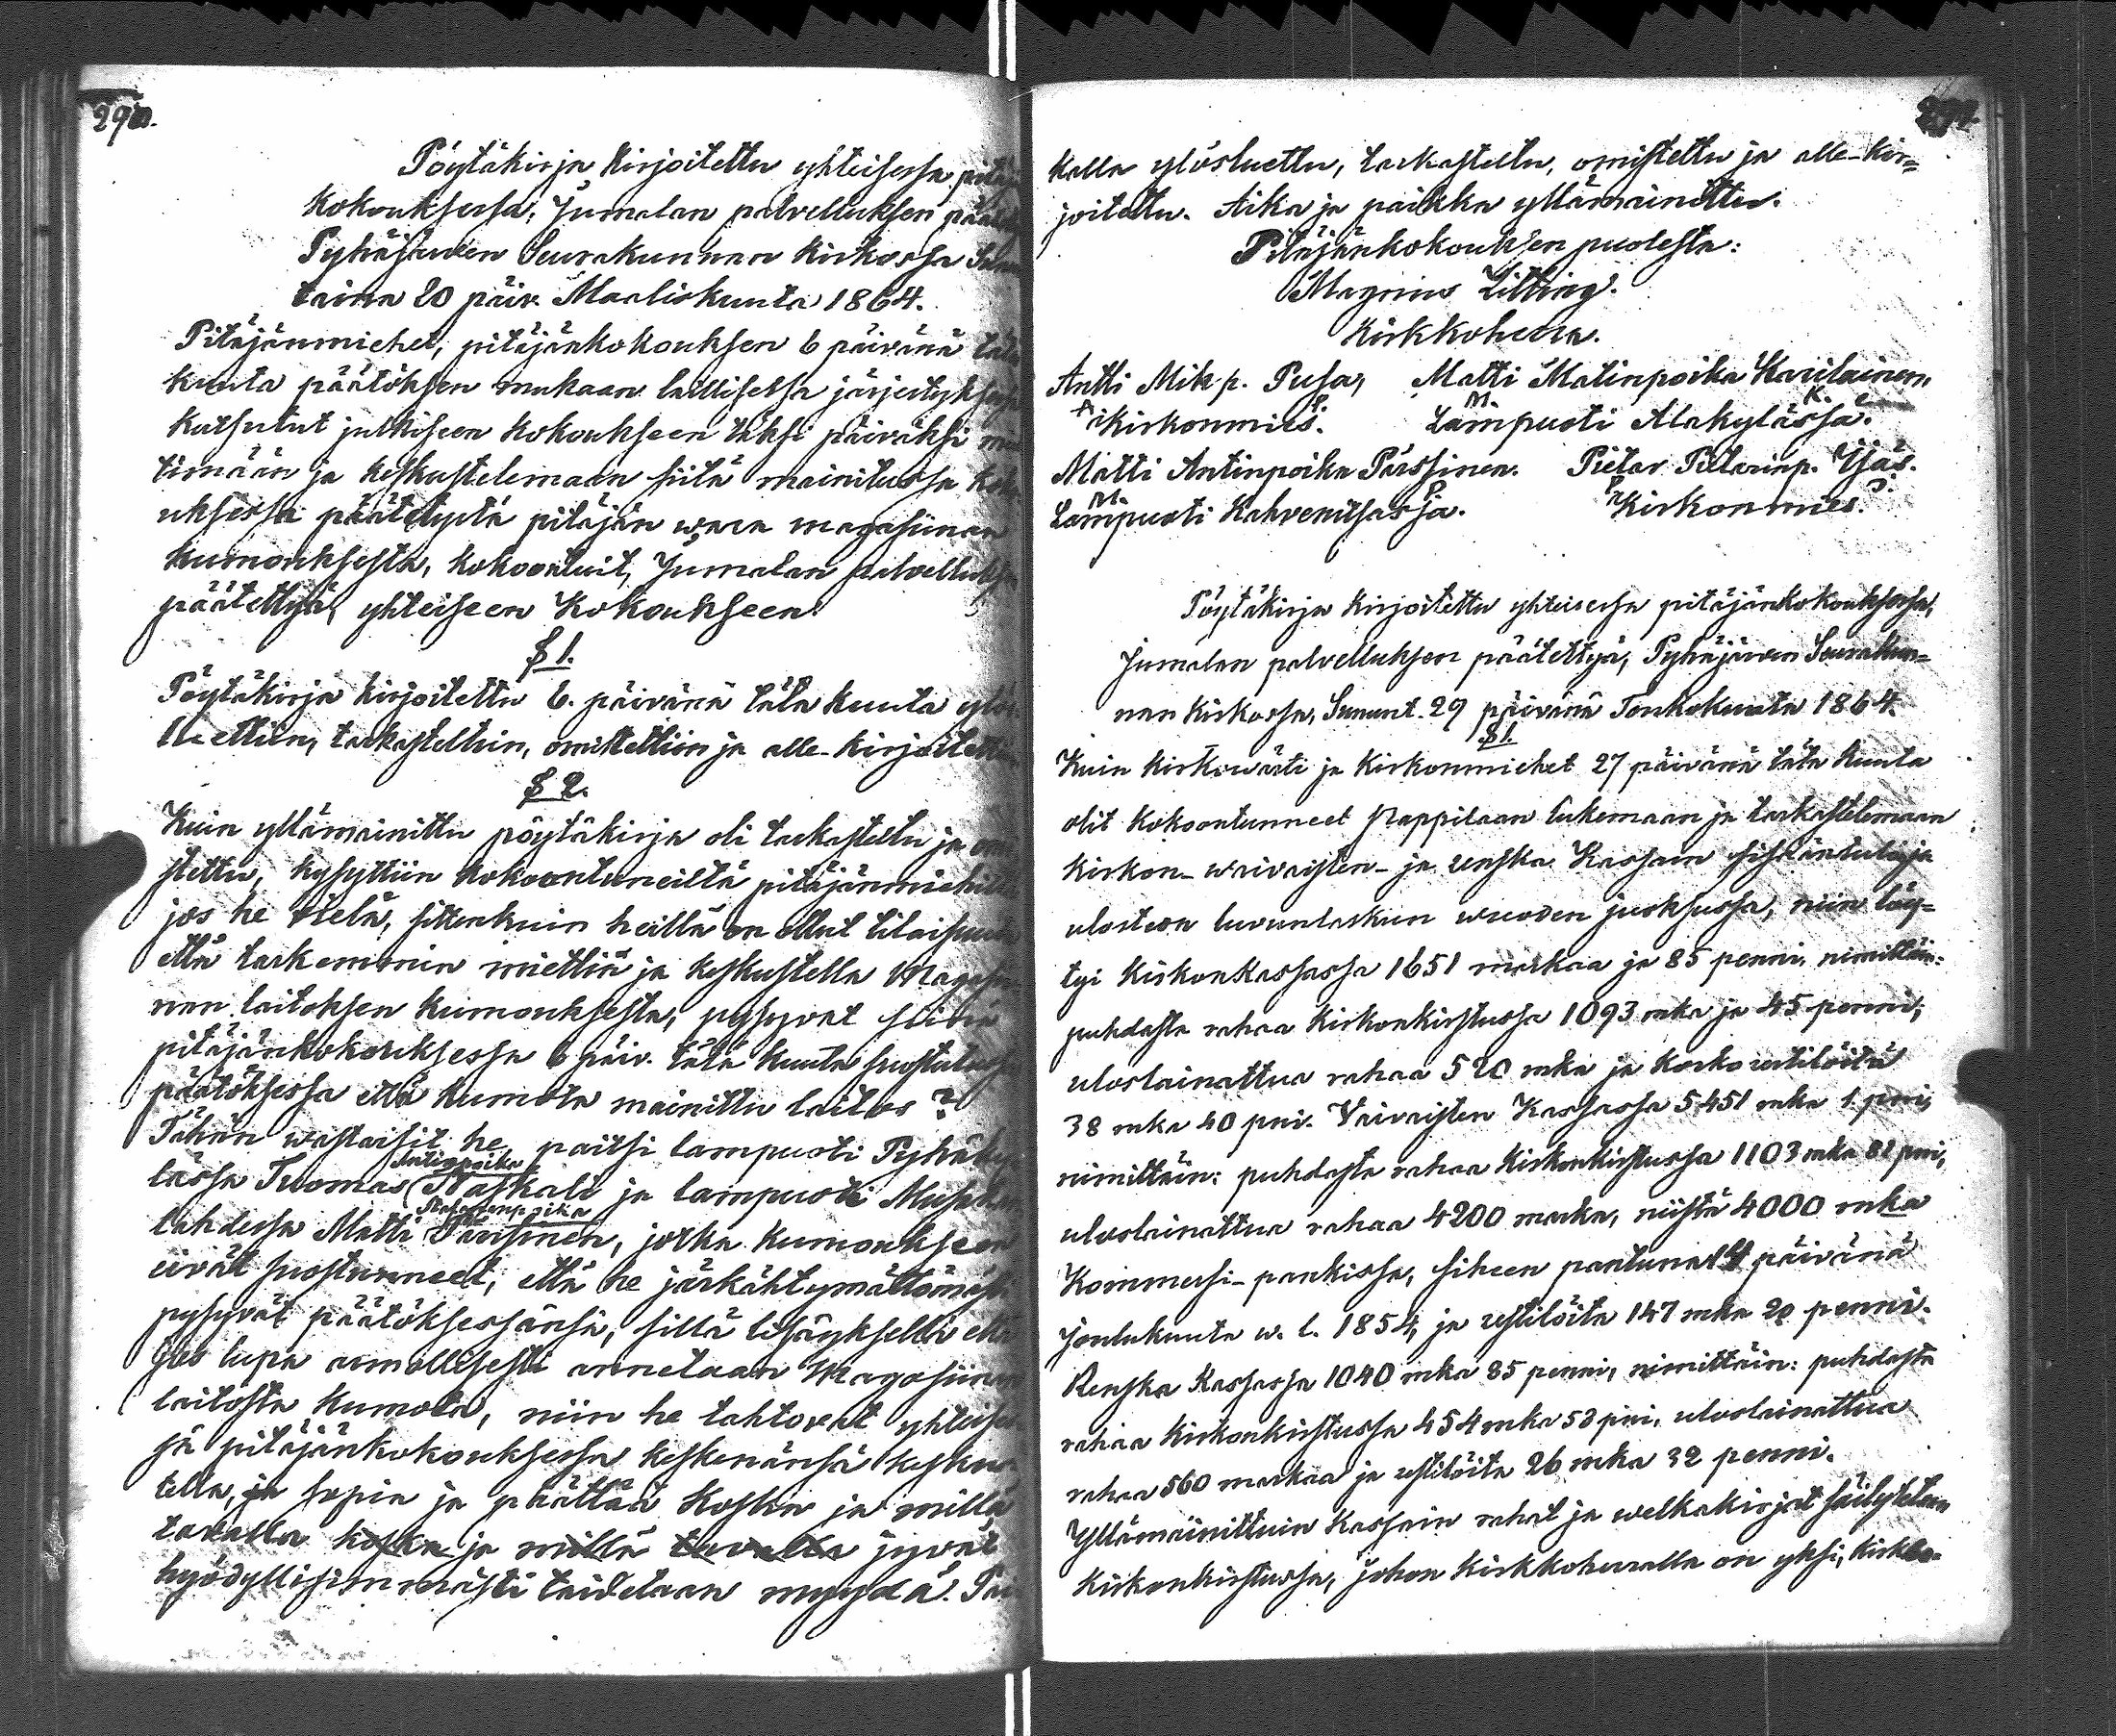 290.
Pöytäkirja kirjoitettu yhteisessä
kokouksessa, Jumalan palvelluksen
Pyhäjärven Seurakunnan kirkossa
taina 20 päiv. Maaliskuuta 1864.
Pitäjänmiehet, pitäjänkokouksen 6 päivänä tätä
kuuta päätöksen mukaan laillisessa järjestyksessä
kutsutut julkiseen kokoukseen täksi päiväksi
timään ja keskustelemaan siitä mainitussa
uksessa päätetystä pitäjän wara magasiinan
kumouksesta, kokoontuit, Jumalan palvelluksen
päätettyä, yhteiseen kokoukseen.
§ 1.
Pöytäkirja kirjoitettu 6. päivänä tätä kuuta ylös-
luettiin, tarkasteltiin, omistettiin ja alle-kirjoitettiin
§ 2.
Kuin yllämainittu pöytäkirja oli tarkasteltu ja omi-
stettu, kysyttiin kokoontuneilta pitäjänmiehiltä
jos he vielä, sittenkuin heillä on ollut tilaisuus
että tarkemmin miettiä ja keskustella Magasii-
nan laitoksen kumouksesta, pysyvät siinä
pitäjänkokouksessa 6 päiv. tätä kuuta
päätöksessä että kumota mainittu laitos?
Tähän wastaisit he, paitsi lampuoti Pyhäky-
Antinpoika
lässä Tuomas Naskali ja lampuoti
tahdessa Matti Pärssinen, jotka kumoukseen
eivät suostunneet, että he järkähtymättömästi
pysyvät päätöksessänsä, sillä lisäyksellä että
jos lupa armollisesti annetaan Magasiinan
laitosta kumota, niin he tahtovat yhteises-
sä pitäjänkokouksessa keskenänsä keskus-
tella, ja sopia ja päättää koska ja millä
tavalla koska ja millä tavalla jyvät
hyödyllisimmästi taidetaan myydä.
291.
kalla ylösluettu, tarkasteltu, omistettu ja alle-kir-
joitettu. Aika ja paikka yllämainittu.
Pitäjänkokouksen puolesta:
Magnus
Kirkkoherra.
Antti Mik p. Pusa, Matti Matinpoika Karilainen,
A. P. M. K.
kirkonmies. Lampuoti Alakylässä.
Matti Antinpoika Pärssinen. Pietar Pietarinp. Ijäs.
M. P. P. I.
Lampuoti Kahvenitsassa. Kirkonmies.
Pöytäkirja kirjoitettu yhteisessä pitäjänkokouksessa,
Jumalan palvelluksen päätettyä, Pyhäjärven Seurakun-
nan kirkossa, Sununt. 29 päivänä Toukokuuta 1864.
§ 1.
Kuin kirkowärti ja kirkonmiehet 27 päivänä tätä kuuta
olit kokoontunneet Pappilaan lukemaan ja tarkastelemaan
kirkon- waivaisten- ja renska kassain sisääntuloja
ulosteon luvunlaskun wuoden juoksussa, niin löy-
tyi kirkonkassassa 1651 markaa ja 85 penni, nimittäin:
puhdasta rahaa kirkonkirstussa 1093 mka ja 45 penni,
uloslainattua rahaa 520 mka ja korko restilöitä
38 mka 40 pni. Vaivaisten Kassassa 5451 mka 1. pni,
nimittäin: puhdasta rahaa kirkonkirstussa 1103 mka 81 pni,
uloslainattua rahaa 4200 marka, niistä 4000 mka
Kommersi-pankissa, siheen pantuna 14 päivänä
Joulukuuta w. l. 1854, ja restilöitä 147 mka 20 penni.
Renska Kassassa 1040 mka 85 penni, nimittäin: puhdasta
rahaa kirkonkirstussa 454 mka 53 pni, uloslainattua
rahaa 560 markaa ja restilöitä 26 mka 32 penni.
Yllämainittuin Kassain rahat ja welkakirjat säilytetään
kirkonkirstussa, johon kirkkoherralla on yksi, kirkko-